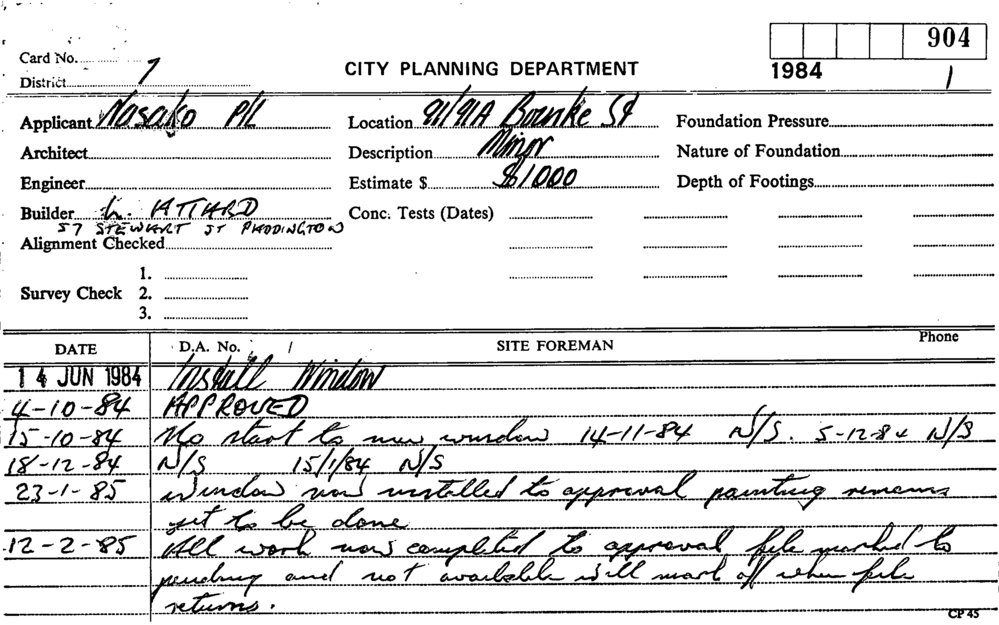 904
Card No.
7
District
CITY PLANNING DEPARTMENT
1984
1
Applicant Nasako P/L
Location 91/91A Bourke St
Foundation Pressure
Architect
Description Minor
Nature of Foundation
Engineer
Estimate $ $1000
Depth of Footings
Builder L. ATTARD
Conc. Tests (Dates)
57 STEWART ST PADDINGTON
Alignment Checked
1.
Survey Check 2.
3.
DATE
D.A. No. /
SITE FOREMAN
Phone
14 JUN 1984 Install Window
4-10-84 APPROVED
15-10-84 No start to new window 14-11-84 N/S. 5-12-84 N/S
18-12-84 N/S 15/1/84 N/S
23-1-85 window now installed to approval painting remains
yet to be done
12-2-85 All work now completed to approval file marked to
pending and not available will mark off when file
returns.
CP 45